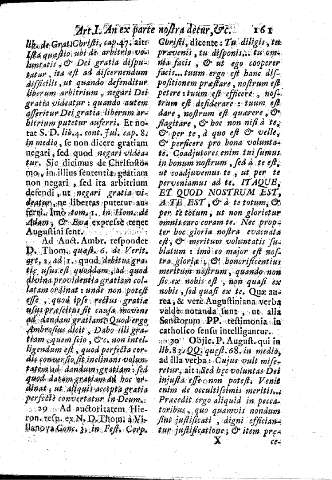 Art. I. An ex parte nostra detur, &c. 161
lib. de Grat. Christi, cap. 47. ait:
Ista quæstio ubi de arbitrio vo-
luntatis, & Dei gratia dispu-
tatur, ita est ad discernendum
difficilis, ut quando defenditur
liberum arbitrium, negari Dei
gratia videatur: quando autem
asseritur Dei gratia liberum ar-
bitrium putetur auferri. Et no-
tat S. D. lib. 4. cont. Jul. cap. 8.
in medio, se non dicere gratiam
negari, sed quod negari videa-
tur. Sic dicimus de Christosto-
mo, in illius sententiis gratiam
non negari, sed ita arbitrium
defendi, ut negari gratia vi-
deatur, ne libertas putetur au-
ferri. Imò tom. 1. in Hom. de
Adam, & Eva expressè tenet
Augustini sent.
Ad Auct. Ambr. respondet
D. Thom. quæst. 6. de Verit.
art. 2. ad 1. quod debitus gra-
tiæ usus est quoddam, ad quod
divina providentia gratiam col-
latam ordinat: unde non potest
esse, quod ipse rectus gratiæ
usus præscitus sit causa movens
ad dandum gratiam. Quod ergo
Ambrosius dicit, Dabo illi gra-
tiam, quem scio, &c. non intel-
ligendum est, quod perfecta cor-
dis conversio sit inclinans volun-
tatem ad dandum gratiam; sed
quod datam gratiam ad hoc or-
dinat, ut aliquis accepta gratia
perfectè convertatur in Deum.
29 Ad auctoritatem Hie-
ron. resp. ex N. D. Thom. à Vi-
llanova Conc. 3. in Fest. Corp.
Christi, dicente: Tu diligis, te
prævenis, tu disponis, tu om-
nia facis, & ut ego cooperer
facis... tuum ergo est hanc do-
mum præparare, nostrum est
petere tuum est efficere, nos-
trum est desiderare: tuum est
dare, nostrum est quærere, &
flagitare, & hoc non nisi à te,
& per te, à quo est & velle,
& perficere pro bona volunta-
te. Coadjutores enim tui sumus
in bonum nostrum, sed à te est,
ut coadjuvemus te, ut per te
perveniamus ad te. ITAQUE,
ET QUOD NOSTRUM EST,
A TE EST, & à te totum, &
per te totum, ut non glorietur
omnis caro coram te. Nec prop-
ter hoc gloria nostra evacuata
est, & meritum voluntatis su-
blatum: imò eo major est nos-
tra gloria, & honorificentius
meritum nostrum, quando non
sic ex nobis est, non quasi ex
nobis, sed quasi ex te. Quæ au-
rea, & verè Augustiniana verba
valdè notanda sunt, ne alia
Sanctorum PP. testimonia in
catholico sensu intelligantur.
30 Objic. P. August. qui in
lib. 83. QQ. quæst. 68. in medio,
ad illa verba: Cujus vult mise-
retur, ait: Sed hæc voluntas Dei
injusta esse non potest. Venit
enim de occultissimis meritis...
Præcedit ergo aliquid in pecca-
toribus, quo quamvis nondum
sint justificati, digni effician-
tur justificatione; & item præ-
X
ce-